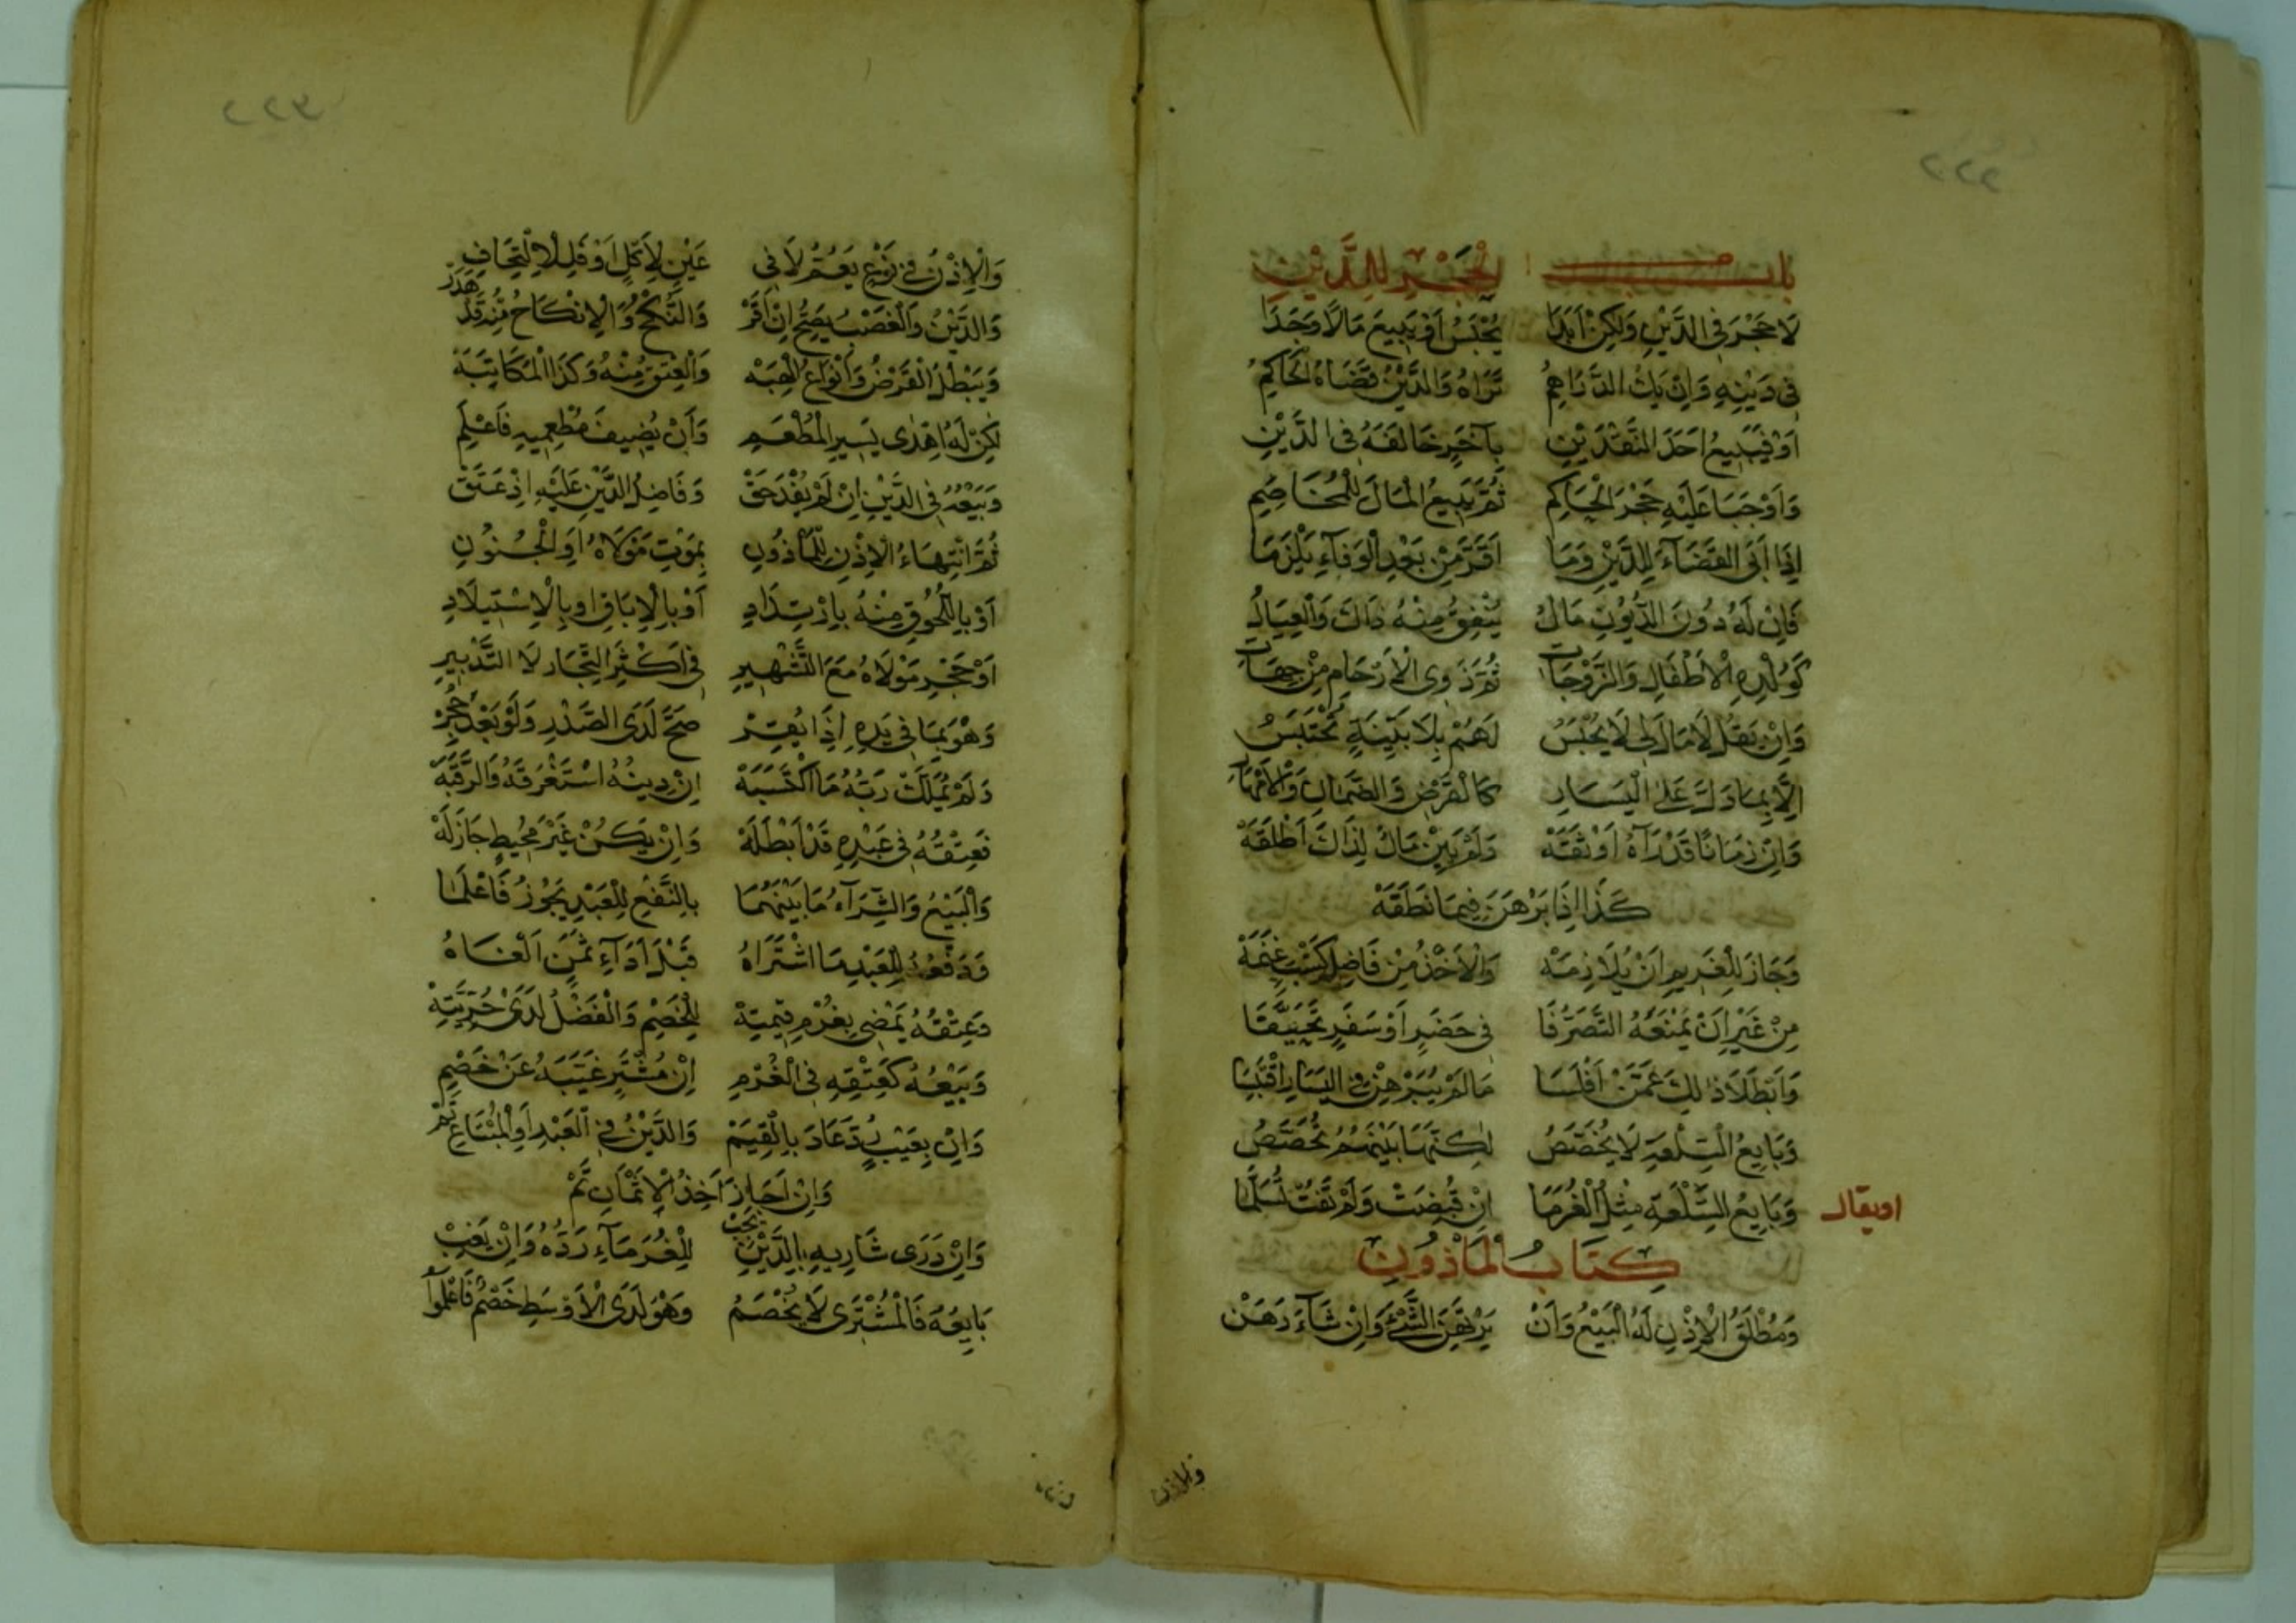 باب الحجر للدين
لَا حَجْرَ فِي الدَّيْنِ وَلَكِنْ أَبَدَا يُحْبَسُ أَوْ يَبِيعَ مَالًا وَجَدَا
فِي دَيْنِهِ وَإِنْ يَكُ الدَّرَاهِمُ تَرَاهُ وَالدَّيْنُ قَضَاهُ الْحَاكِمُ
أَوْ فَيَبِيعُ أَحَدَ النَّقْدَيْنِ بِآخَرٍ خَالَفَهُ فِي الدَّيْنِ
وَأَوْجَبَا عَلَيْهِ حَجْرَ الْحَاكِمِ ثُمَّ يَبِيعُ الْمَالَ لِلْمُخَاصِمِ
إِذَا أَبَى الْقَضَاءَ لِلدَّيْنِ وَمَا أَقَرَّ مِنْ بَعْدِ الْوَفَاءِ يَلْزَمَا
فَإِنْ لَهُ دُونَ الدُّيُونِ مَالُ يُنْفِقُ مِنْهُ ذَاكَ وَالْعِيَالُ
كَوُلْدِهِ الْأَطْفَالِ وَالزَّوْجَاتِ ثُمَّ ذَوِي الْأَرْحَامِ مِنْ جِهَاتِ
وَإِنْ يَقُلْ لَا مَالَ لِي لَا يُحْبَسُ لَهُمْ بِلَا بَيِّنَةٍ تُحْتَبَسُ
إِلَّا بِمَا دَلَّ عَلَى الْيَسَارِ كَالْقَرْضِ وَالضَّمَانِ وَالْأَمْهَارِ
وَإِنْ زَمَانًا قَدْ رَآهُ أَوْثَقَهْ وَلَمْ يَبِنْ مَالٌ لِذَاكَ أَطْلَقَهْ
كَذَا إِذَا بَرْهَنَ فِيمَا نَطَقَهْ
وَجَازَ لِلْغَرِيمِ أَنْ يُلَازِمَهْ وَالْأَخْذُ مِنْ فَاضِلِ كَسْبٍ غَنِمَهْ
مِنْ غَيْرِ أَنْ يَمْنَعَهُ التَّصَرُّفَا فِي حَضَرٍ أَوْ سَفَرٍ
وَأَبْطَلَا ذٰلِكَ عَمَّنْ أَفْلَسَا مَا لَمْ يُبَرْهِنْ فِي الْيَسَارِ
وَبَايِعُ السِّلْعَةِ لَا يُخَصَّصُ لٰكِنَّهَا بَيْنَهُمْ تُخَصَّصُ
اويقال وَبَايِعُ السِّلْعَةِ مِثْلُ الْغُرَمَا إِنْ قُبِضَتْ وَلَمْ
كِتَابُ الْمَأْذُونِ
وَمُطْلَقُ الْإِذْنِ لَهُ الْبَيْعُ وَأَنْ يَرْتَهِنَ الشَّيْءَ وَإِنْ شَاءَ رَهَنْ
والاذن
وَالْإِذْنُ فِي نَوْعٍ يَعُمُّ لَا فِي عَيْنٍ لِأَكْلٍ أَوْ فَلِلِالْتِحَافِ
وَالدَّيْنُ وَالْغَصْبُ يَصِحُّ إِنْ أَقَرْ وَالنُّكْحُ وَالْإِنْكَاحُ مِنْهُ قَدْ هَدَرْ
وَيَبْطُلُ الْقَرْضُ وَأَنْوَاعُ الْهِبَهْ وَالْعِتْقُ مِنْهُ وَكَذَا الْمُكَاتَبَهْ
لٰكِنْ لَهُ أَهْدَى يَسِيرِ الْمَطْعَمِ وَأَنْ يُضِيفَ مُطْعِمِيهِ فَاعْلَمِ
وَبَيْعُهُ فِي الدَّيْنِ إِنْ لَمْ يُفْدَ حَقْ وَفَاضِلُ الدَّيْنِ عَلَيْهِ إِذْ عَتَقْ
ثُمَّ انْتِهَاءُ الْإِذْنِ لِلْمَأْذُونِ بِمَوْتِ مَوْلَاهُ أَوِ الْجُنُونِ
أَوْ بِاللُّحُوقِ مِنْهُ بِارْتِدَادِ أَوْ بِالْإِبَاقِ أَوْ بِالْإِسْتِيلَادِ
أَوْ حَجْرِ مَوْلَاهُ مَعَ التَّشْهِيرِ فِي أَكْثَرِ التُّجَّارِ لَا التَّدْبِيرِ
وَهْوَ بِمَا فِي يَدِهِ إِذَا يُقِرْ صَحَّ لَدَى الصَّدْرِ وَلَوْ بَعْدُ حُجِرْ
وَلَمْ يَمْلِكْ رَبُّهُ مَا اكْتَسَبَهْ إِنْ دِينُهُ اسْتَغْرَقَهُ وَالرَّقَبَهْ
فَعِتْقُهُ فِي عَبْدِهِ قَدْ أَبْطَلَهْ وَإِنْ يَكُنْ غَيْرَ مُحِيطٍ جَازَ لَهْ
وَالْبَيْعُ وَالشِّرَاءُ مَا بَيْنَهُمَا بِالنَّفْعِ لِلْعَبْدِ يَجُوزُ فَاعْلَمَا
وَدَفْعُهُ لِلْعَبْدِ مَا اشْتَرَاهُ قَبْلَ أَدَاءِ ثَمَنٍ أَلْغَاهُ
وَعِتْقُهُ يَمْضِي بِغُرْمِ قِيمَتِهْ لِلْخَصْمِ وَالْفَضْلُ لَدَى حُرِّيَّتِهْ
وَبَيْعُهُ كَعِتْقِهِ فِي الْغُرْمِ إِنْ مُشْتَرٍ غَيَّبَهُ عَنْ خَصْمِ
وَإِنْ بِعَيْبٍ رُدَّ عَادَ بِالْقِيَمْ وَالدَّيْنُ فِي الْعَبْدِ أَوِ الْمُبْتَاعِ ثَمْ
وَإِنْ أَجَازَ أَخْذُ الْأَثْمَانِ تَمْ
وَإِنْ دَرَى شَارِيهِ بِالدَّيْنِ يَجِبْ لِلْغُرَمَاءِ رَدُّهُ وَإِنْ يَغِبْ
بَايِعُهُ فَالْمُشْتَرِي لَا يُخْصَمُ وَهْوَ لَدَى الْأَوْسَطِ خَصْمٌ فَاعْلَمُوا